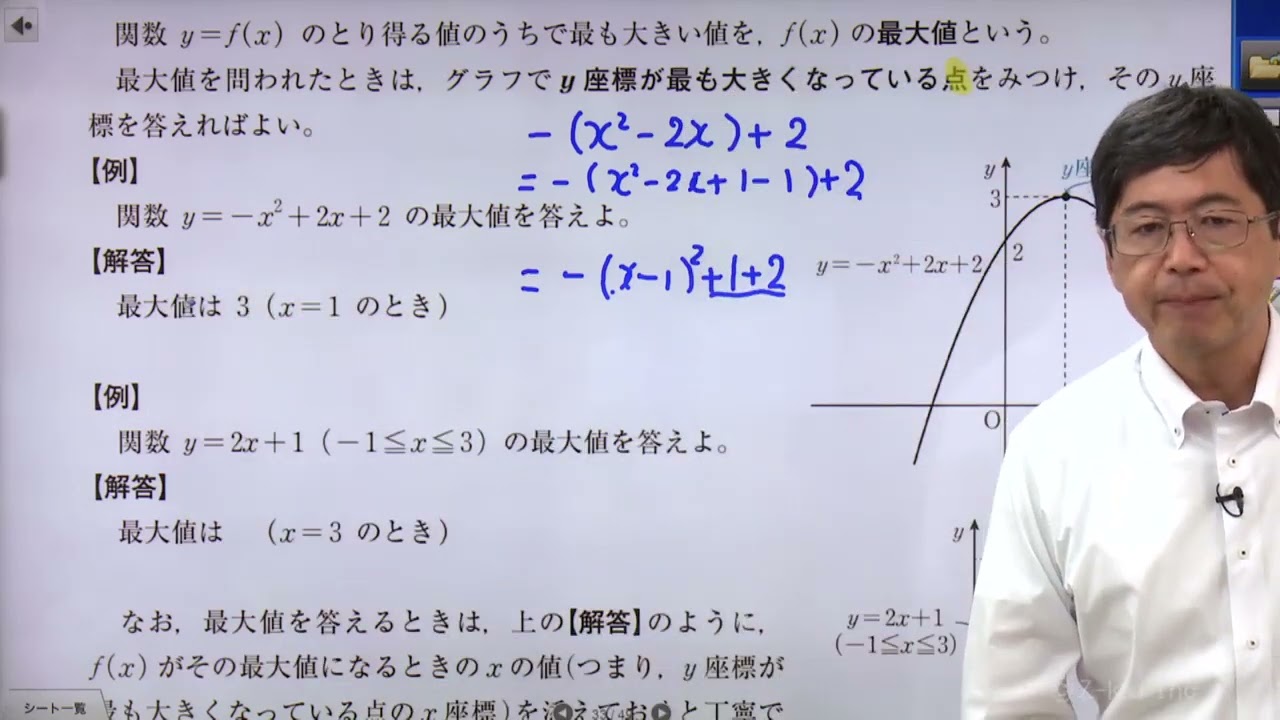 関数 y=f(x) のとり得る値のうちで最も大きい値を，f(x) の最大値という。
最大値を問われたときは，グラフで y 座標が最も大きくなっている点をみつけ，その y 座
標を答えればよい。
-(x²-2x)+2
【例】
=-(x²-2x+1-1)+2
関数 y=-x²+2x+2 の最大値を答えよ。
【解答】
=-(x-1)²+1+2
最大値は 3 (x=1 のとき)
y
y座
3
2
y=-x²+2x+2
O
【例】
関数 y=2x+1 (-1≦x≦3) の最大値を答えよ。
【解答】
最大値は (x=3 のとき)
y
なお，最大値を答えるときは，上の【解答】のように，
y=2x+1
(-1≦x≦3)
f(x) がその最大値になるときの x の値(つまり，y 座標が
も大きくなっている点の x 座標)を添えてお と丁寧で
シート一覧